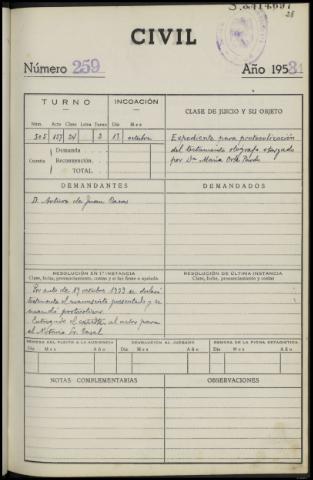 28
CIVIL
Número 259
Año 1953
TURNO
INCOACIÓN
CLASE DE JUICIO Y SU OBJETO
Núm. Acto Clase Letra Turno Día Mes
505 157 24 2 17 octubre
Expediente para protocolización
del testamento ológrafo otorgado
por Dª María
Cuantía
Demanda
Reconvención
TOTAL
DEMANDANTES
DEMANDADOS
D. Arturo de Juan
RESOLUCIÓN EN 1ª INSTANCIA
Clase, fecha, pronunciamiento, costas y si fue firme o apelada
RESOLUCIÓN DE ÚLTIMA INSTANCIA
Clase, fecha, pronunciamiento y costas
Por auto de 19 octubre 1953 se declaró
testamento el manuscrito presentado y se
mandó protocolizar.
Entregado el al actor para
el Notario Sr.
REMESA DEL PLEITO A LA AUDIENCIA
DEVOLUCIÓN AL JUZGADO
REMESA DE LA FICHA ESTADÍSTICA
Día Mes Año
Día Mes Año
Día Mes Año
NOTAS COMPLEMENTARIAS
OBSERVACIONES